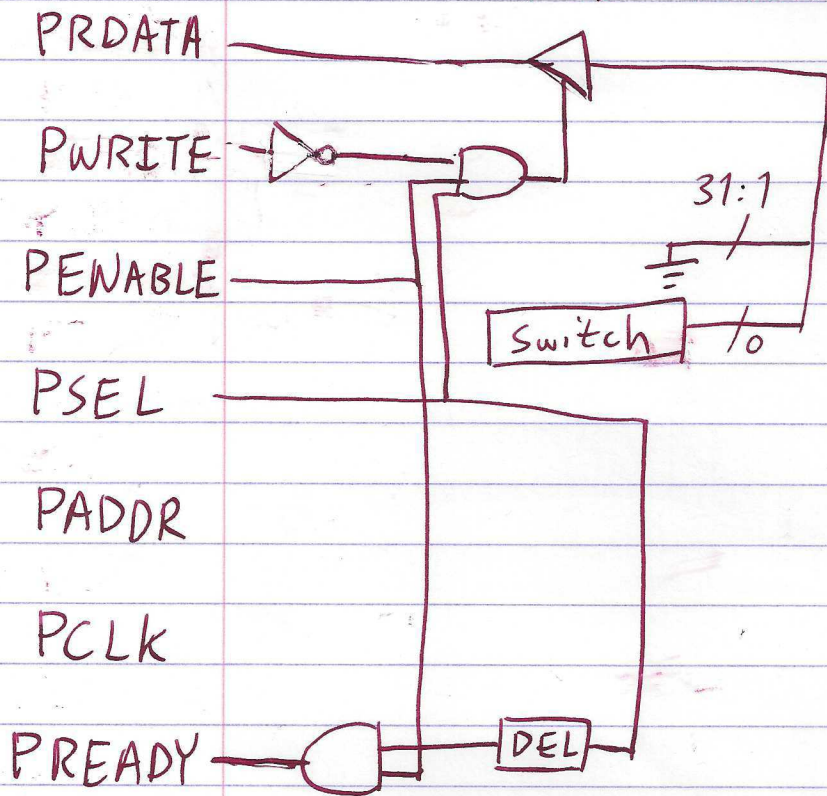 PRDATA
PWRITE
31:1
PENABLE
Switch
0
PSEL
PADDR
PCLK
PREADY
DEL